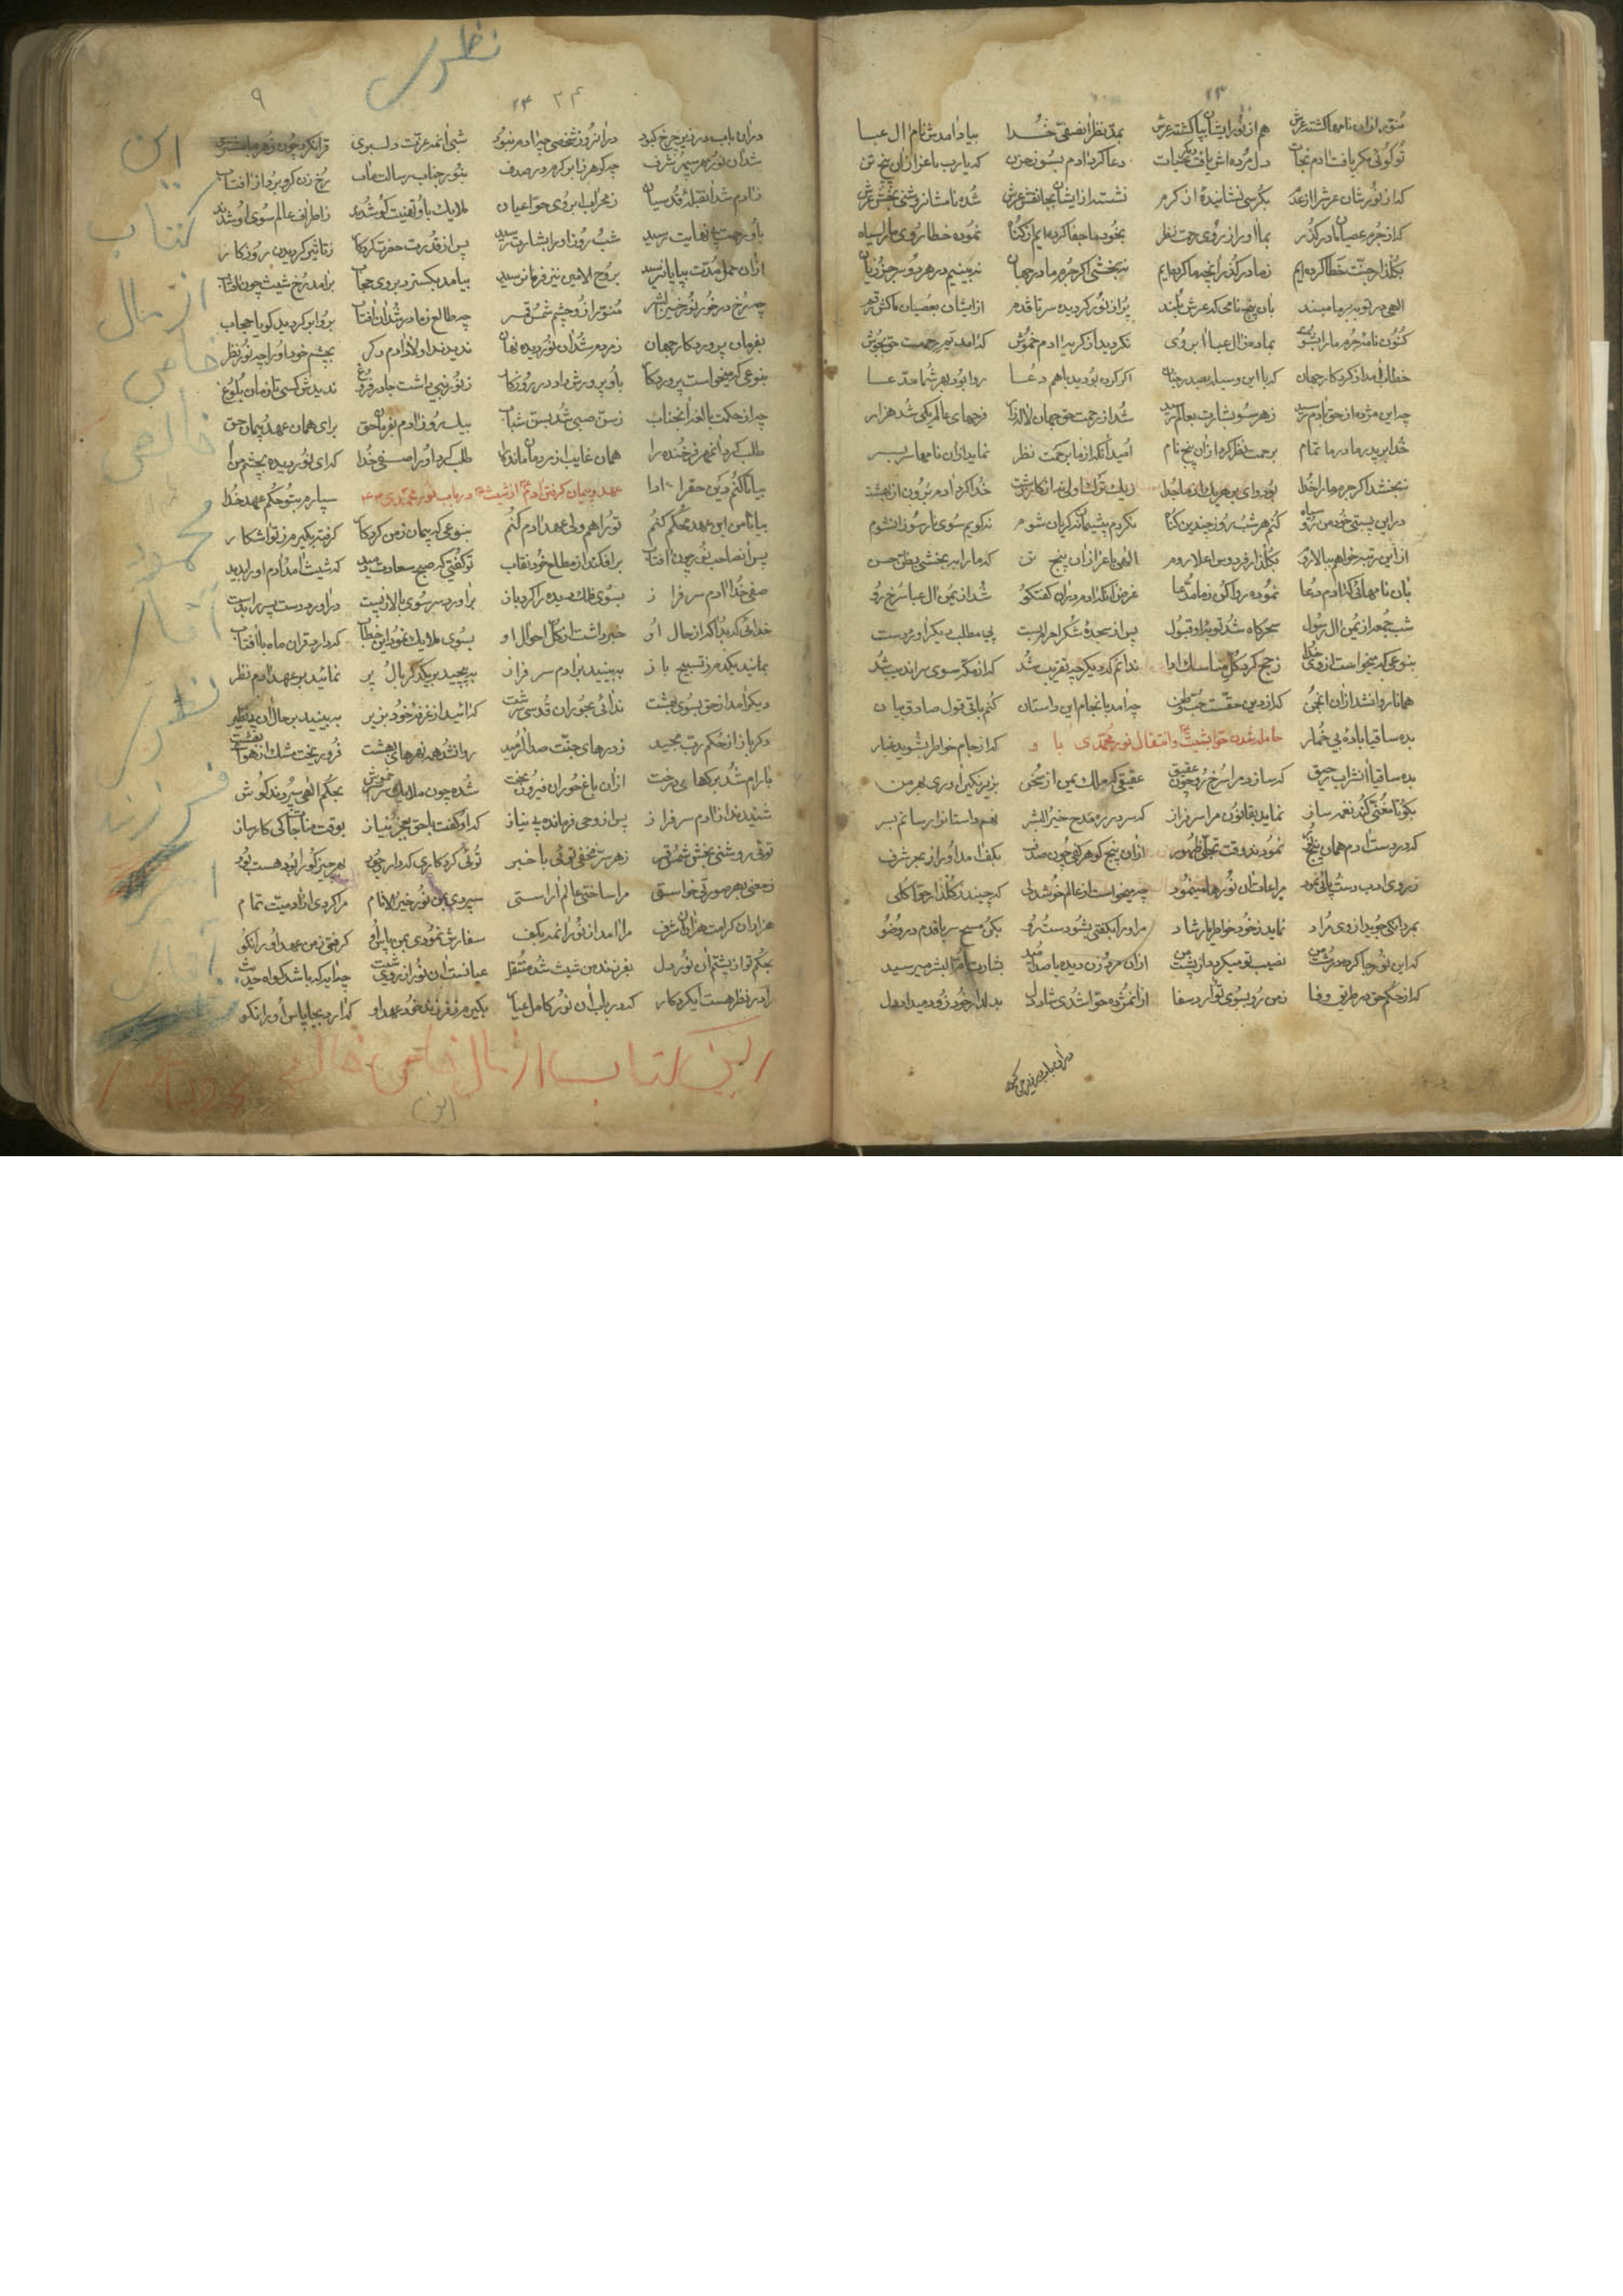 ۱۳
منور ازان نامها گشته عرش هم از نور ایشان بپا گشته فرش بمد نظر آن صفی خدا بیاد آمدش نام آل عبا
تو گوئی مگر یافت آدم نجات دل مرده اش یافت حیات دعا کرد آدم بسوز حزن که یا رب باعزاز آن پنج تن
که از نورشان عرش را از عدم بکرسی نشانیدهٔ از کرم نشستند از ایشان بجا نقش عرش شده نامشان روشنی بخش عرش
که از جرم عصیان ما در گذر بما آور از روی رحمت نظر بخود ما جفا کرده ایم از گناه نموده خطا روی ما را سیاه
بگلزار جنت خطا کرده ایم ز ما در گذر آنچه ما کرده ایم نبخشی اگر جرم ما در جهان نبینیم در هر دو سر جز زیان
الهی در توبه بر ما مبند بآن پنج نامی که عرش بلند پر از نور گردیده سر تا قدم از ایشان بعصیان ما کش قلم
کنون نامهٔ جرم ما را بشوی بما ده ز آل عبا آبروی نگردید از گریه آدم خموش که آمد یم رحمت حق بجوش
خطاب آمد از کردگار جهان که با این وسیله بصد اگر کرده بودید با هم دعا روا بود بهر شما مدعا
چه این مژده از حق بآدم رسید ز هر سو بشارت بعالم رسید شد از رحمت حق جهان لاله زار فرحهای عالم یکی شد هزار
خدا پرید ما در ما تمام برحمت نظر کرد از آن پنج نام امید آنکه از ما برحمت نظر نماید از آن نامها سر بسر
نبخشد اگر جرم ما را خدا بود وای بر هر یک از ما جدا ز یک ترک اولی خدا کرد آدم برون از بهشت
در این پستی خود من رو سیاه کنم هر شب و روز چندین گناه نگردم پشیمان نه گریان شوم نگویم سوی نار سوزان شوم
از این رتبه خواهم ببالا روم بگلزار فردوس اعلا روم الهی باعزاز آن پنج تن که ما را ببخشی بطق حسن
بآن نامهائی که آدم دعا نموده روا کن ز ما مدعا غرض آنکه آدم در آن گفتگو شد از یمن آل عبا سرخ رو
شب جمعه از یمن آل رسول سحرگاه شد توبهٔ او قبول پس از سجدهٔ شکر احرام بست پی مطلب دیگر آورد دست
بنوعی که میخواست از وی خدا ز حج کرد کل مناسک ادا ندانم که دیگر چه تقریب شد که از مکه سوی سراندیب شد
همانا روانشد از آن انجمن که از دین حقست حب وطن چه آمد بانجام این داستان کنم باقی قول صادق بیان
بده ساقیا بادهٔ بی خمار حامله شدن حوا بشیث و انتقال نور محمدی با و که از جام خاطر بشوید غبار
بده ساقیا آن شراب رحیق که سازد مرا سرخ رو چون عقیق عقیقی که مالک یمن از سخن بزیر نگین آوری بهر من
بگو تا مغنی کند نغمه ساز نماید بقانون مرا سرفراز که سر در ره مدح خیر البشر نهم داستانرا رسانم بسر
که در دست آدم همان پنج نمودند وقت تجلی ظهور از آن پنج گوهر کفی چون صدف بکف آمد او را ز بحر شرف
ز روی ادب دست پائی نمود مراعات آن نورها مینمود چه میخواست از عالم خوشدلی که چیند ز گلزار حوا گلی
بمردانگی جوید از وی مراد نماید ز خود خاطرها شاد مر او را بگفتی بشو دست و رو بکن مسح سر با قدم در وضو
که این نور جا کرده در پشت من نصیب تو میگردد از پشت من از آن مژده زن دیده با صد امید بشارت بام البشر میرسید
که از حکم حق در طریق وفا ز من رو بسوی تو آرد صفا از آن مژده حوا شدی شاد دل بدلدار خود زود میداد دل
در آن باب در زیر چرخ کبود
نظر
۹ ۱۴ ۲۴
در آن باب در زیر چرخ کبود در آنروز شخصی جز آدم نبود شبی آنمه عزت و دلبری قران کرد چون زهره با مشتری
شد آن نور مهر سپهر شرف چه گوهر ز ابر کرم در صدف بنور جناب رسالت مآب رخ زن گرو برد از آفتاب
ز آدم شد آن قبلهٔ قدسیان ز محراب ابروی حوا عیان ملایک باو تهنیت گو شدند ز اطراف عالم سوی او شدند
باو رحمت بی نهایت رسید شب و روز او را بشارت رسید پس از قدرت حضرت کردگار ز تأثیر گردیدن روزگار
از آن حمل مدت بپایان رسید بروح الامین نیز فرمان رسید بیامد بگسترد بر وی حجاب برآمد رخ شیث چون آفتاب
چه رخ در خور نور خیر البشر منور از او چشم شمس و قمر چه طالع ز مادر شد آن آفتاب بر او ابر گردید گویا حجاب
بفرمان پروردگار جهان ز مردم شد آن نور دیده نهان ندیدند او لاد آدم دگر بچشم خود او را چه نور نظر
بنوعی که میخواست پروردگار باو پرورش داد در روزگار ز نور نبی داشت جا در فروغ ندیدش کسی تا زمان بلوغ
چه از حکمت بالغه آنجناب ز سن صبی شد بسن شباب بیک روز آدم بفرمان حق برای همان عهد و پیمان حق
طلب کرد آنمهر فرخنده را همان غایب از مردمان مانده را طلب کرد او را صفی خدا که ای نور دیده بچشم من آ
بیا تا کنم دین حق را ادا عهد و پیمان گرفتن آدم از شیث در باب نور محمدی سپارم بتو حکم عهد خدا
بیا تا من این عهد محکم کنم ترا هم ولی عهد آدم کنم بنوعی که پیمان ز من کردگار گرفته بگیرم ز تو آشکار
پس آنصاحب نور چون آفتاب برافکند از مطلع خود نقاب تو گفتی که صبح سعادت دمید که شیث آمد آدم او را بدید
صفی خدا آدم سرفراز بسوی فلک دیده را کرد باز برآورد سر سوی بالا ز پست درآورد دست پسر را بدست
خدائی که بد آگه از حال او خبر داشت از کل احوال او بسوی ملایک نمود این خطاب که دارد قران ماه با آفتاب
بمانید یکدم ز تسبیح باز ببینید بر آدم سرفراز بپیچید بر یکدگر بال و پر نمائید بر عهد آدم نظر
دیگر آمد از حق بسوی بهشت ندائی بحوران قدسی سرشت که آئید از غرفهٔ خود بزیر ببینید بر حال آن بی نظیر
دگر باز از حکم رب مجید ز درهای جنت صدا آرمید روانشد همه نهرهای بهشت فرو ریخت مشک از هوا
بآرام شد برگهای درخت از آن باغ حوران فیروزبخت شده چون ملایک سراسر خموش بحکم الهی سپردند گوش
شنیدند از آدم سرفراز پس از وحی فرمانده بی نیاز که او گفت با حق بعجز و نیاز بوقت مناجات کی کارساز
توئی روشنی بخش شمس و قمر ز هر سر مخفی توئی با خبر توئی کردگاری که دارد وجود بهر چیز کو را بود هست بود
ز معنی بهر صورتی خواستی مرا ساختی عالم آراستی سپردی بمن نور خیر الانام مرا کردی از آدمیت تمام
هزاران کرامت هزاران شرف مرا آمد از نور آنمه بکف سفارش نمودی بمن پاس او گرفتی ز من عهد او را نکو
بحکم تو از پشتم آن نور دل بفرزند من شیث شد منتقل عیانست آن نور از روی شیث چه آید که باشد گواه حدیث
را در نظر هست ای کردگار که در باب آن نور کامل عیار بگیرم ز فرزند خود عهد او که آرد بجا پاس او را نکو
این
کتاب
از مال
خاص
خالص
محمود
آقا
نظر
فرزند
این کتاب از مال خاص خالص
این